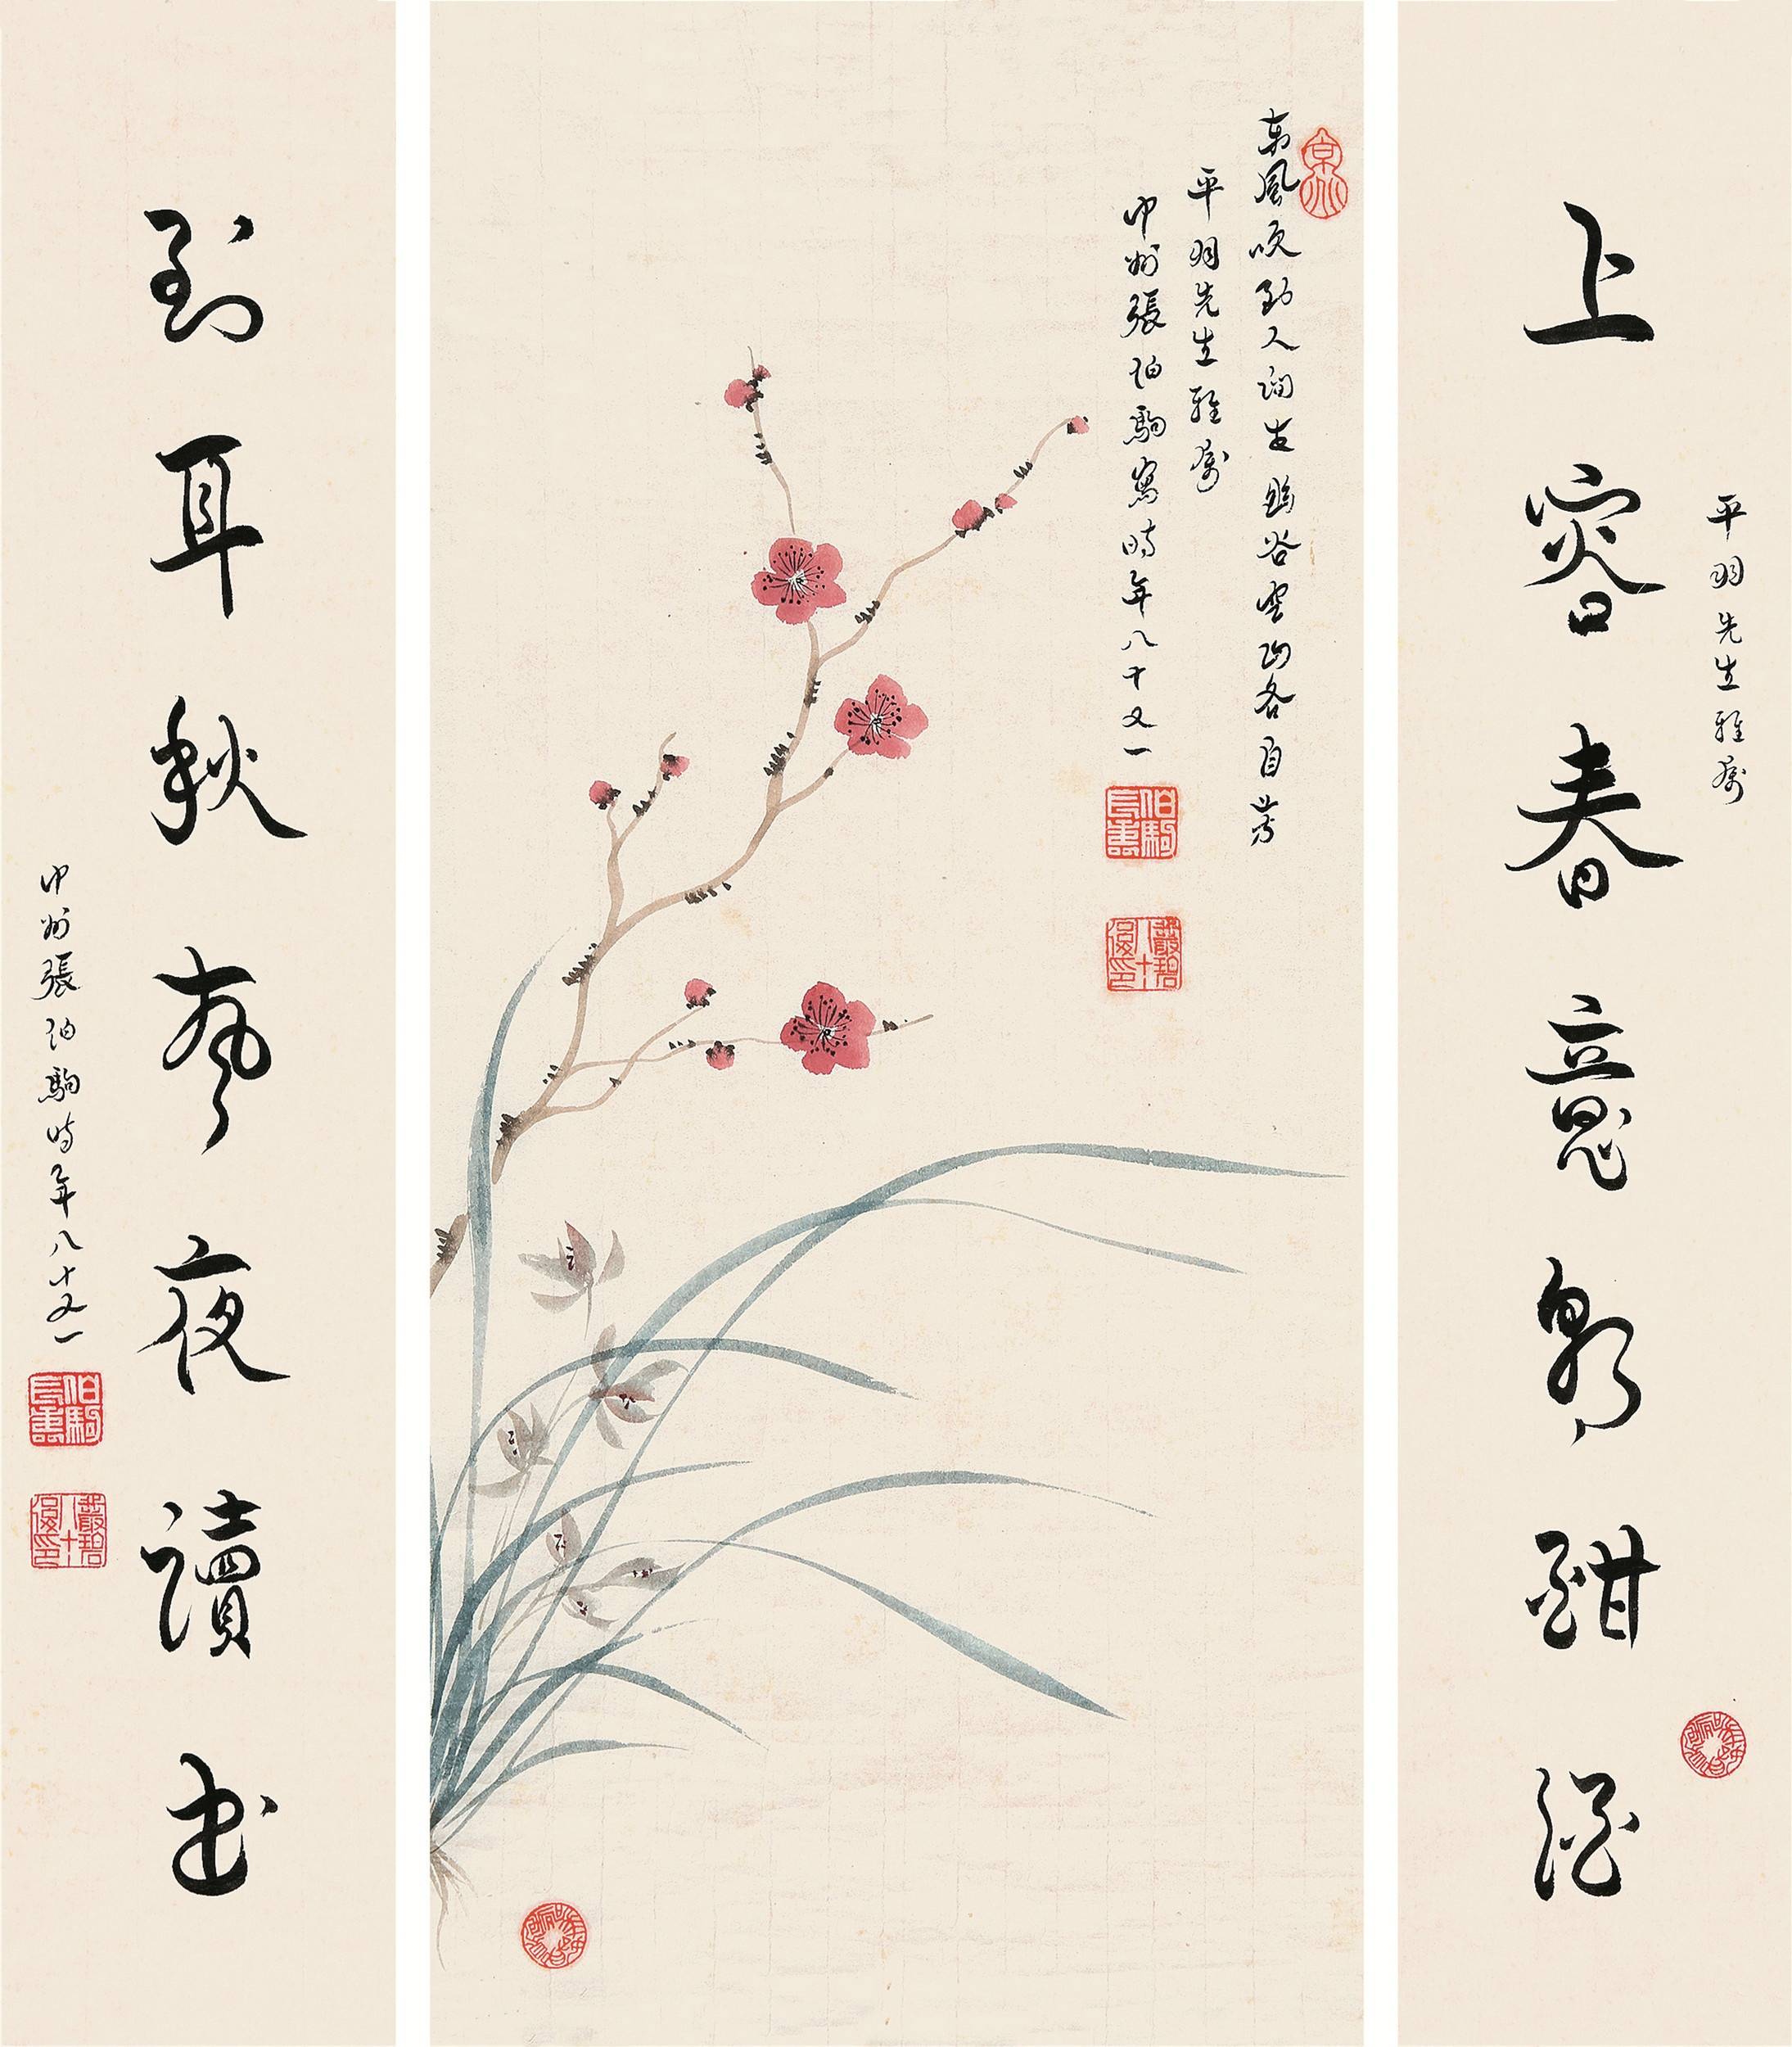 上容春意朝酣酒
平羽先生雅屬
東風吹到人間世幽谷空山各自芳
平羽先生雅屬
中州張伯駒寫時年八十又一
叢碧八十後印
到耳秋聲夜讀書
中州張伯駒時年八十又一
叢碧八十後印